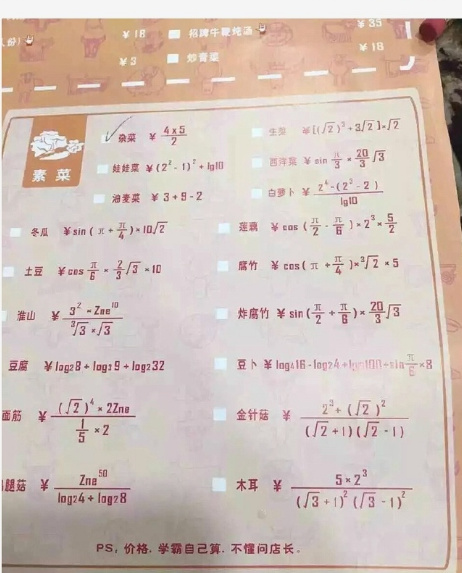 ¥18 招牌牛鞭炖汤 ¥35
¥3 炒青菜 ¥18
素菜
杂菜 ¥ 4×5/2
生菜 ¥[(√2)³+3√2]×√2
娃娃菜 ¥(2²-1)²+lg10
西洋菜 ¥ sin π/3 × 20/3 √3
油麦菜 ¥ 3+9-2
白萝卜 ¥ 2⁴-(2²-2)/lg10
冬瓜 ¥sin(π+π/4)×10√2
莲藕 ¥cos(π/2-π/6)×2³×5/2
土豆 ¥cos π/6 × 2/3 √3 ×10
腐竹 ¥cos(π+π/4)×³√2 ×5
淮山 ¥ 3²-Zne¹⁰/³√3×√3
炸腐竹 ¥sin(π/2+π/6)×20/3 √3
豆腐 ¥log₂8+log₃9+log₂32
豆卜 ¥log₄16-log₂4+lg100+sin π/6 ×8
面筋 ¥ (√2)⁴×2Zne/1/5×2
金针菇 ¥ 2³+(√2)²/(√2+1)(√2-1)
腿菇 ¥ Zne⁵⁰/log₂4+log₂8
木耳 ¥ 5×2³/(√3+1)²(√3-1)²
PS, 价格, 学霸自己算, 不懂问店长.